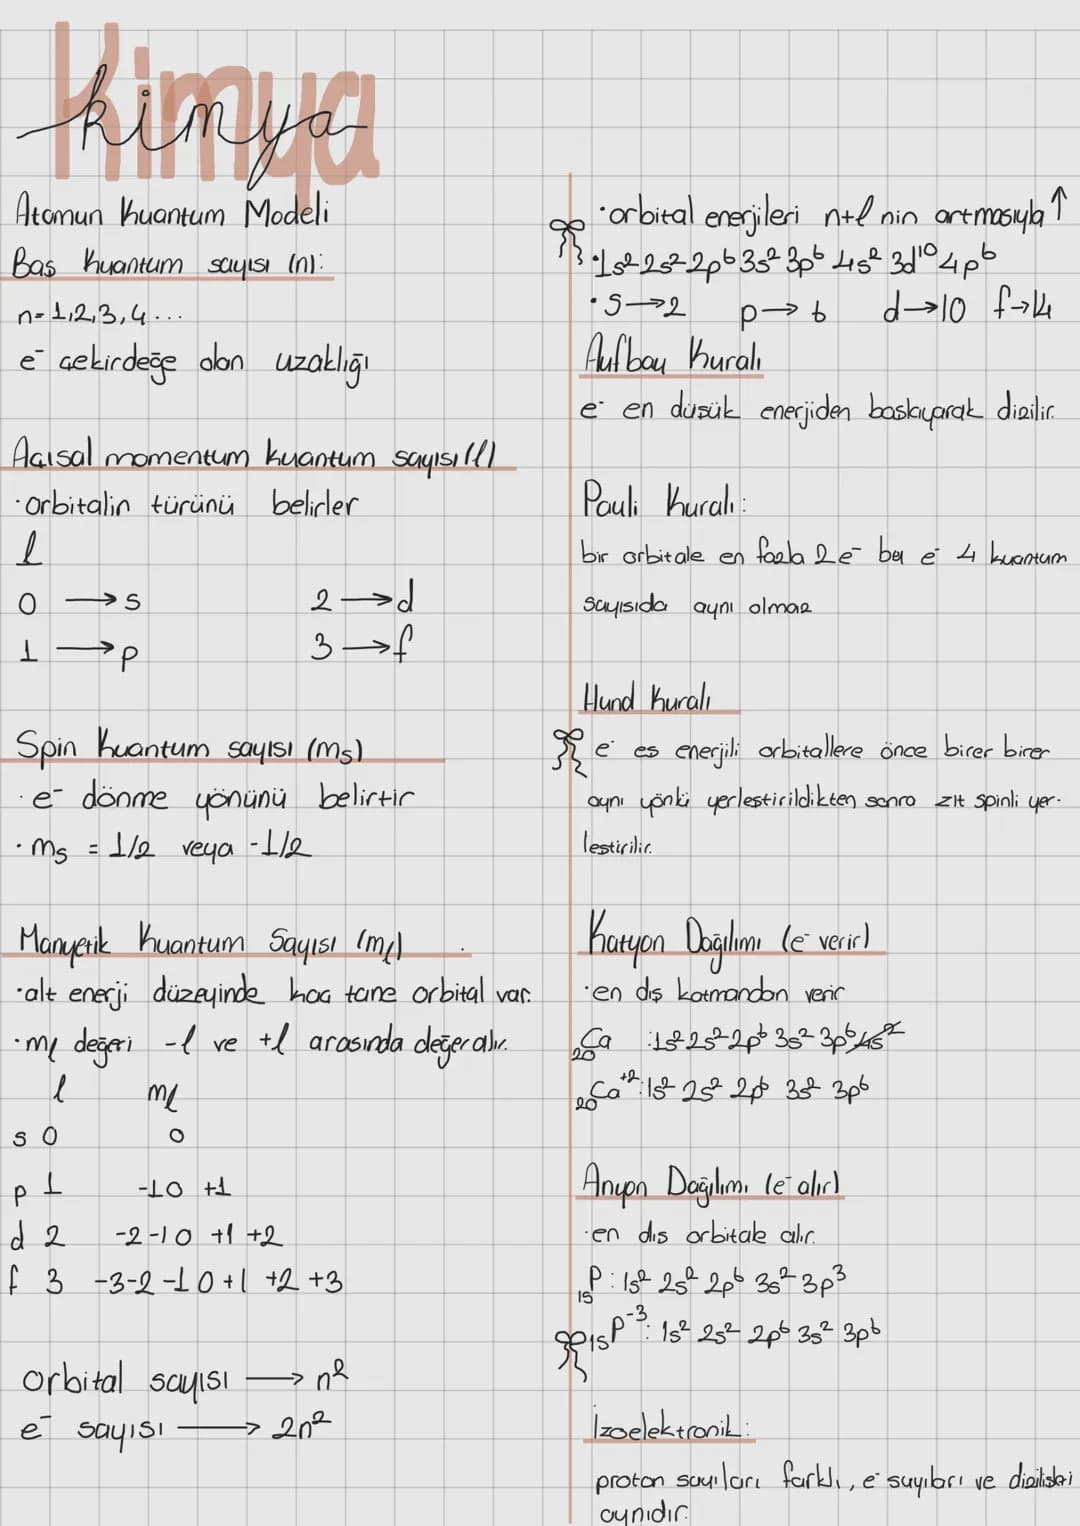 Kimya
kimya
Atomun Kuantum Modeli
Baş Kuantum sayısı (n):
n=1,2,3,4...
e⁻ çekirdeğe olan uzaklığı
Açısal momentum kuantum sayısı (l)
·orbitalin türünü belirler
l
0 → s 2 → d
1 → p 3 → f
Spin kuantum sayısı (ms)
·e⁻ dönme yönünü belirtir
·ms = 1/2 veya -1/2
Manyetik Kuantum Sayısı (ml)
·alt enerji düzeyinde kaç tane orbital var.
·ml değeri -l ve +l arasında değer alır.
l ml
s 0 0
p 1 -1 0 +1
d 2 -2 -1 0 +1 +2
f 3 -3 -2 -1 0 +1 +2 +3
orbital sayısı → n²
e⁻ sayısı → 2n²
·orbital enerjileri n+l nin artmasıyla ↑
·1s² 2s² 2p⁶ 3s² 3p⁶ 4s² 3d¹⁰ 4p⁶
·s→2 p→6 d→10 f→14
Aufbau Kuralı
e⁻ en düsük enerjiden baslayarak dizilir.
Pauli Kuralı:
bir orbitale en fazla 2e⁻ bu e⁻ 4 kuantum
sayısıda aynı olmaz
Hund Kuralı
e⁻ es enerjili orbitallere önce birer birer
aynı yönlü yerlestirildikten sonra zıt spinli yer-
lestirilir.
Katyon Dağılımı (e⁻ verir)
·en dış katmandan verir
₂₀Ca :1s² 2s² 2p⁶ 3s² 3p⁶ 4s²
₂₀Ca⁺²:1s² 2s² 2p⁶ 3s² 3p⁶
Anyon Dağılımı (e⁻ alır)
·en dıs orbitale alır.
₁₅P : 1s² 2s² 2p⁶ 3s² 3p³
₁₅P⁻³: 1s² 2s² 2p⁶ 3s² 3p⁶
İzoelektronik:
proton sayıları farklı, e⁻ sayıları ve dizilisleri
aynıdır.